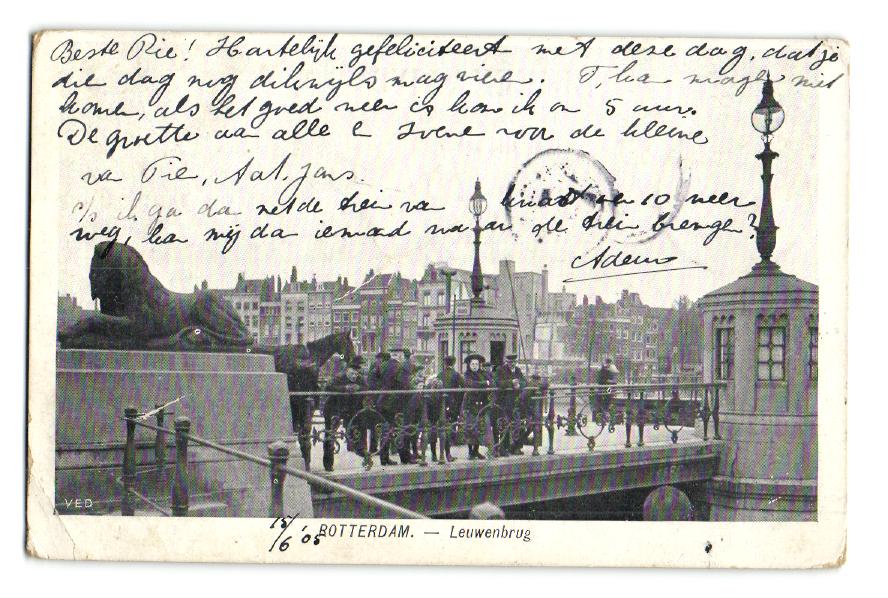 Beste Pie! Hartelijk gefeliciteert met deze dag, dat je
die dag nog dikwijls mag viere. T, ka mage niet
kome, als het goed weer is kom ik om 5 uur.
De groette aa alle e zoene voor de kleine
va Pie, Aat. Jans.
P/s ik ga da met de trein va kwart over 10 weer
weg, kan mij da iemand naar de trein brenge?
Adem
VED
15/6 '05
ROTTERDAM. — Leuwenbrug